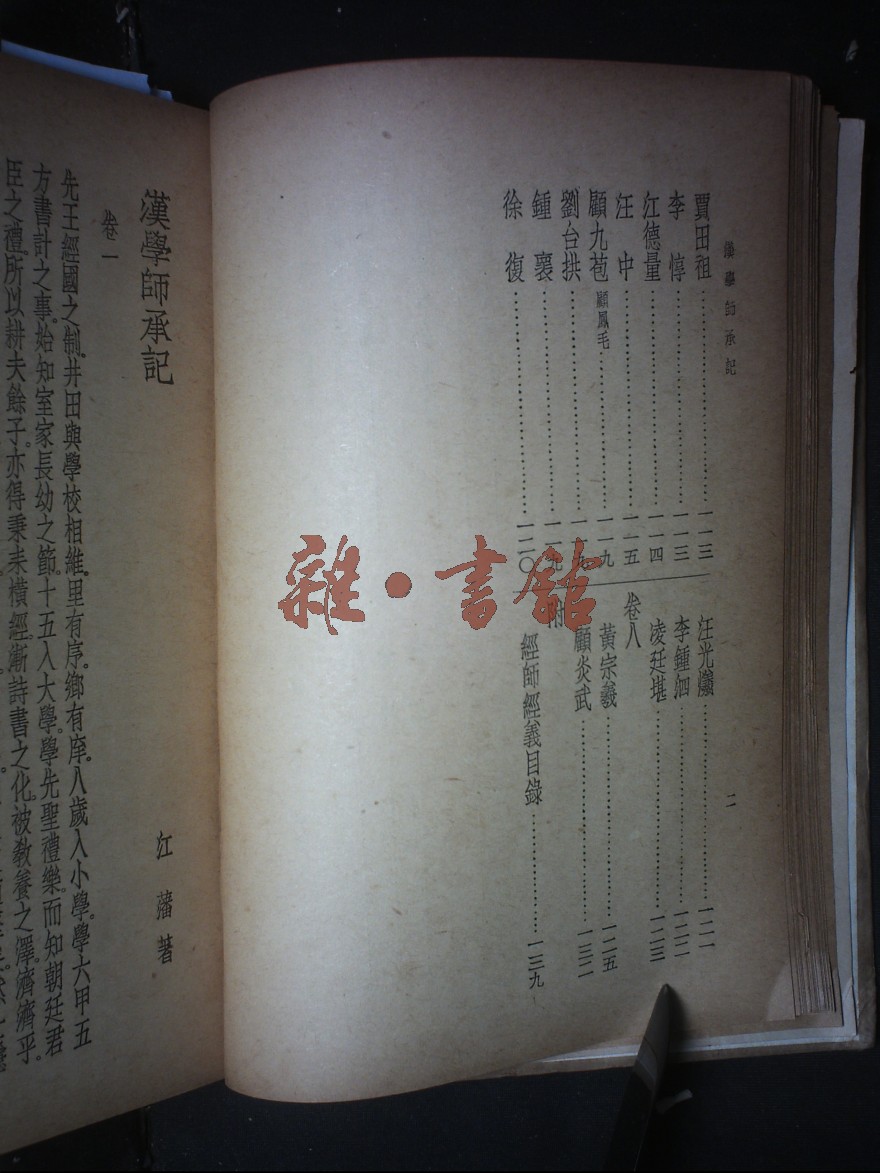 漢學師承記
賈田祖……一一三
李惇……一一三
江德量……一一四
汪中……一一五
顧九苞 顧鳳毛……一一九
劉台拱……一一九
鍾褱……一一九
徐復……一二〇
汪光爔……一二一
李鍾泗……一二二
凌廷堪……一二三
卷八
黃宗羲……一二五
顧炎武……一三二
附
經師經義目錄……一三九
二
雜·書館
漢學師承記
卷一
江藩著
先王經國之制，井田與學校相維，里有序，鄉有庠，八歲入小學，學六甲五
方書計之事，始知室家長幼之節。十五入大學，學先聖禮樂，而知朝廷君
臣之禮。所以耕夫餘子，亦得秉耒橫經，漸詩書之化，被教養之澤，濟濟乎，